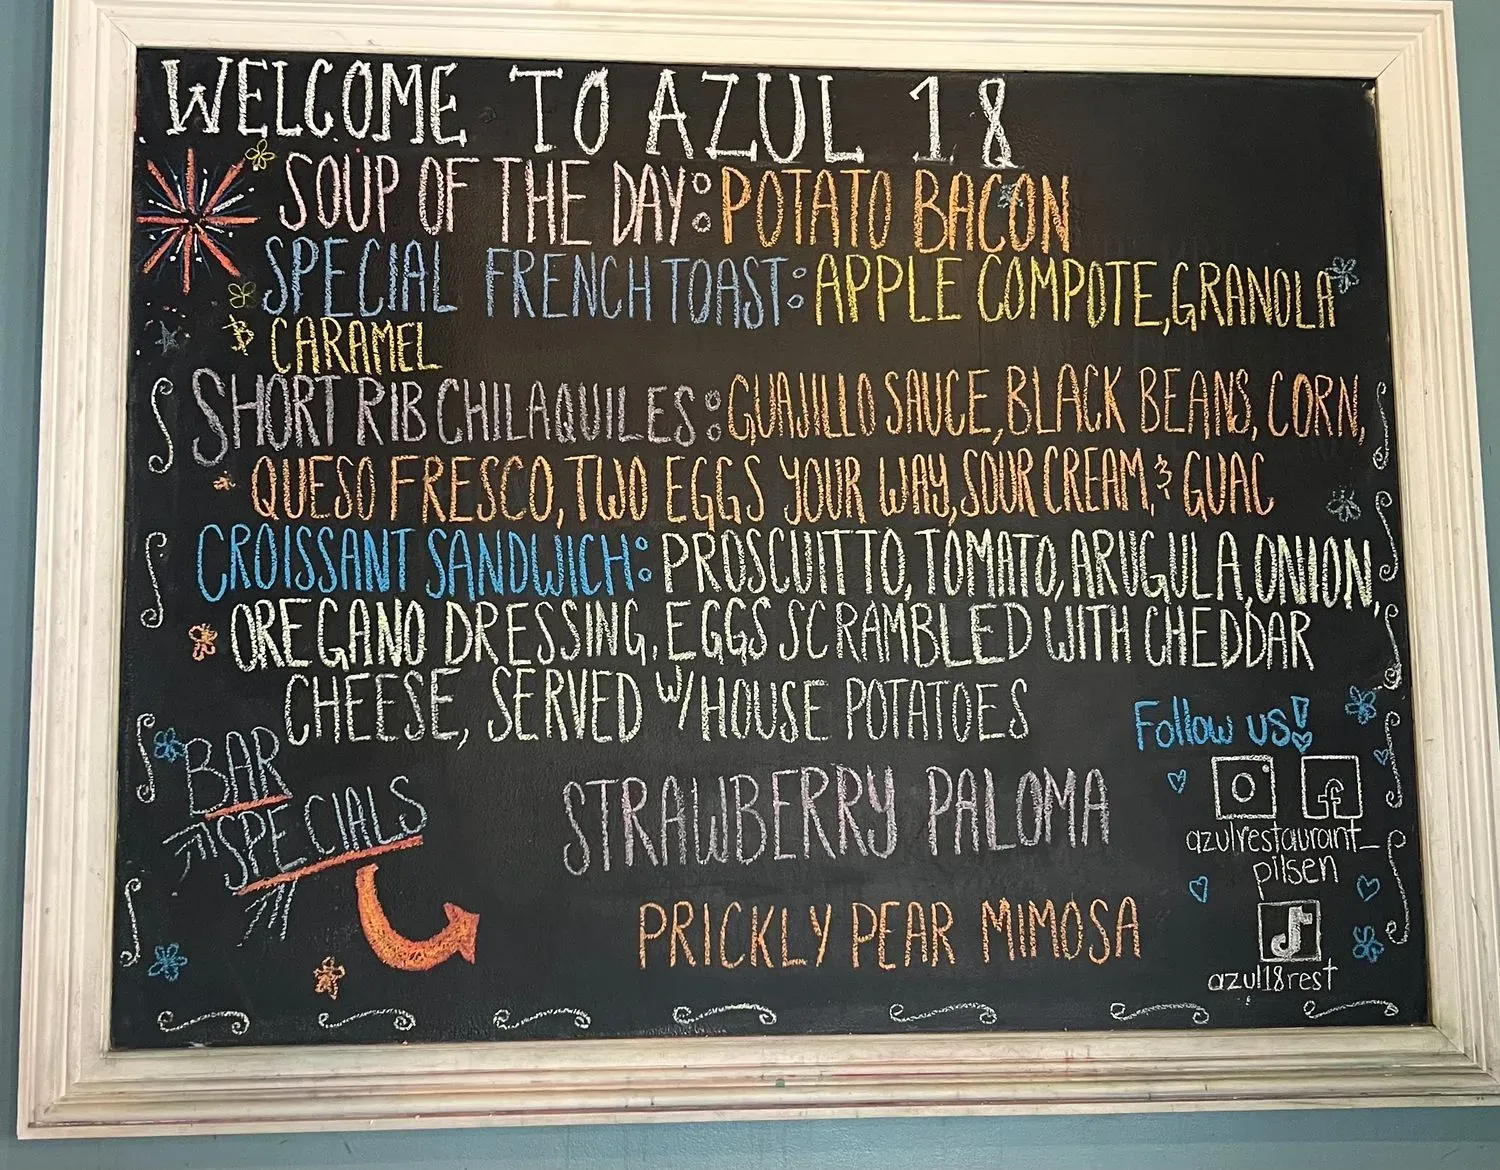 WELCOME TO AZUL 18
SOUP OF THE DAY: POTATO BACON
SPECIAL FRENCH TOAST: APPLE COMPOTE, GRANOLA
& CARAMEL
SHORT RIB CHILAQUILES: GUAJILLO SAUCE, BLACK BEANS, CORN,
QUESO FRESCO, TWO EGGS YOUR WAY, SOUR CREAM, & GUAC
CROISSANT SANDWICH: PROSCUITTO, TOMATO, ARUGULA, ONION,
OREGANO DRESSING, EGGS SCRAMBLED WITH CHEDDAR
CHEESE, SERVED W/HOUSE POTATOES
BAR
SPECIALS
STRAWBERRY PALOMA
PRICKLY PEAR MIMOSA
Follow us!
azulrestaurant_
pilsen
azul18rest